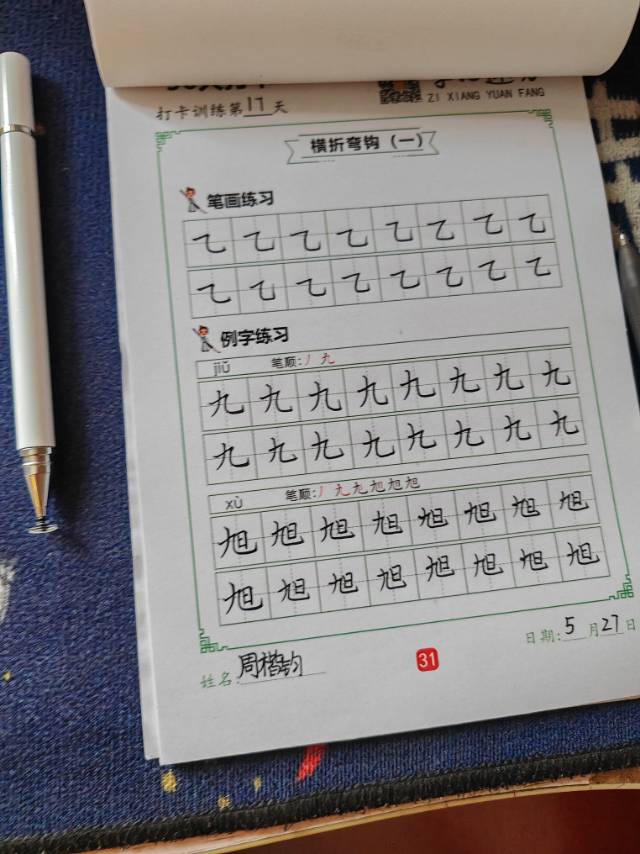 ZI XIANG YUAN FANG
打卡训练第17天
横折弯钩（一）
笔画练习
乙乙乙乙乙乙乙乙
乙乙乙乙乙乙乙乙
例字练习
jiǔ 笔顺:丿九
九九九九九九九九
九九九九九九九九
xù 笔顺:丿九九旭旭旭
旭旭旭旭旭旭旭旭
旭旭旭旭旭旭旭旭
姓名:周楷钧
31
日期:5月27日